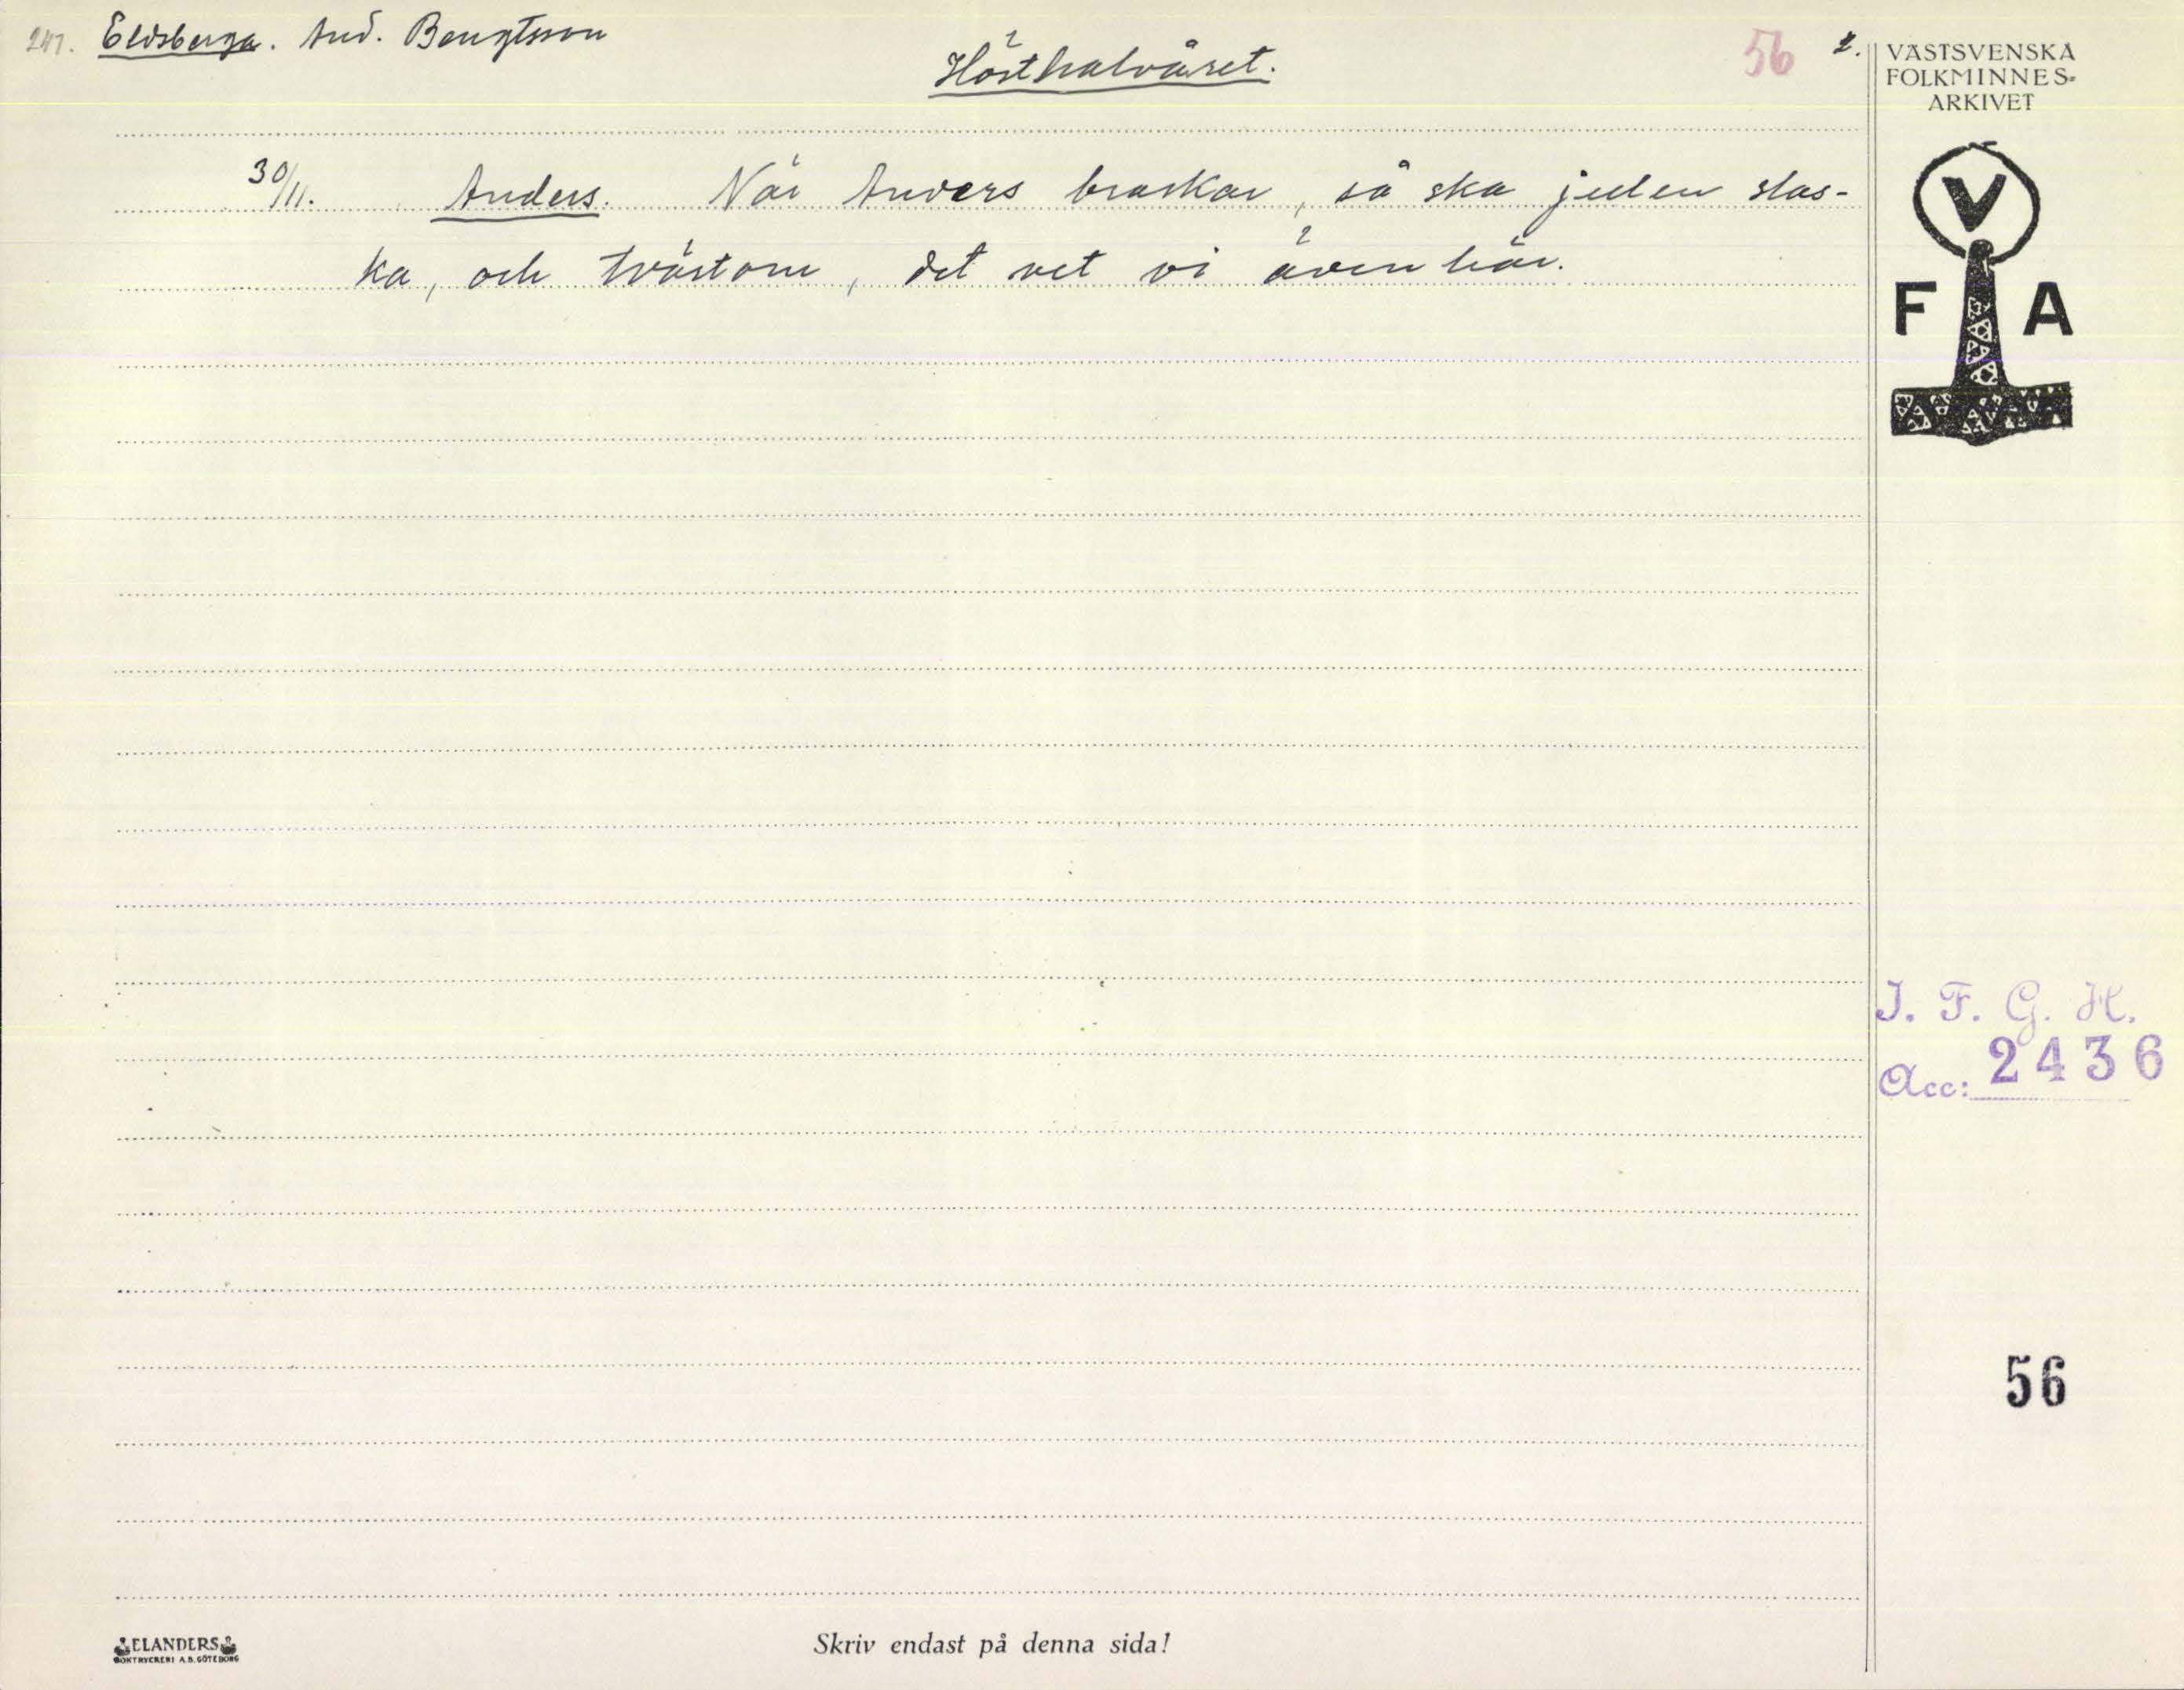 247. Eldsberga. And. Bengtsson
Hösthalvåret.
56 2.
VÄSTSVENSKA
FOLKMINNES-
ARKIVET
30/11. Anders. När Anders braskar, så ska julen slas-
ka, och tvärtom, det vet vi även här.
V
F A
I. F. G. H.
Acc: 2436
56
ELANDERS
BOKTRYCKERI A.B. GÖTEBORG
Skriv endast på denna sida!